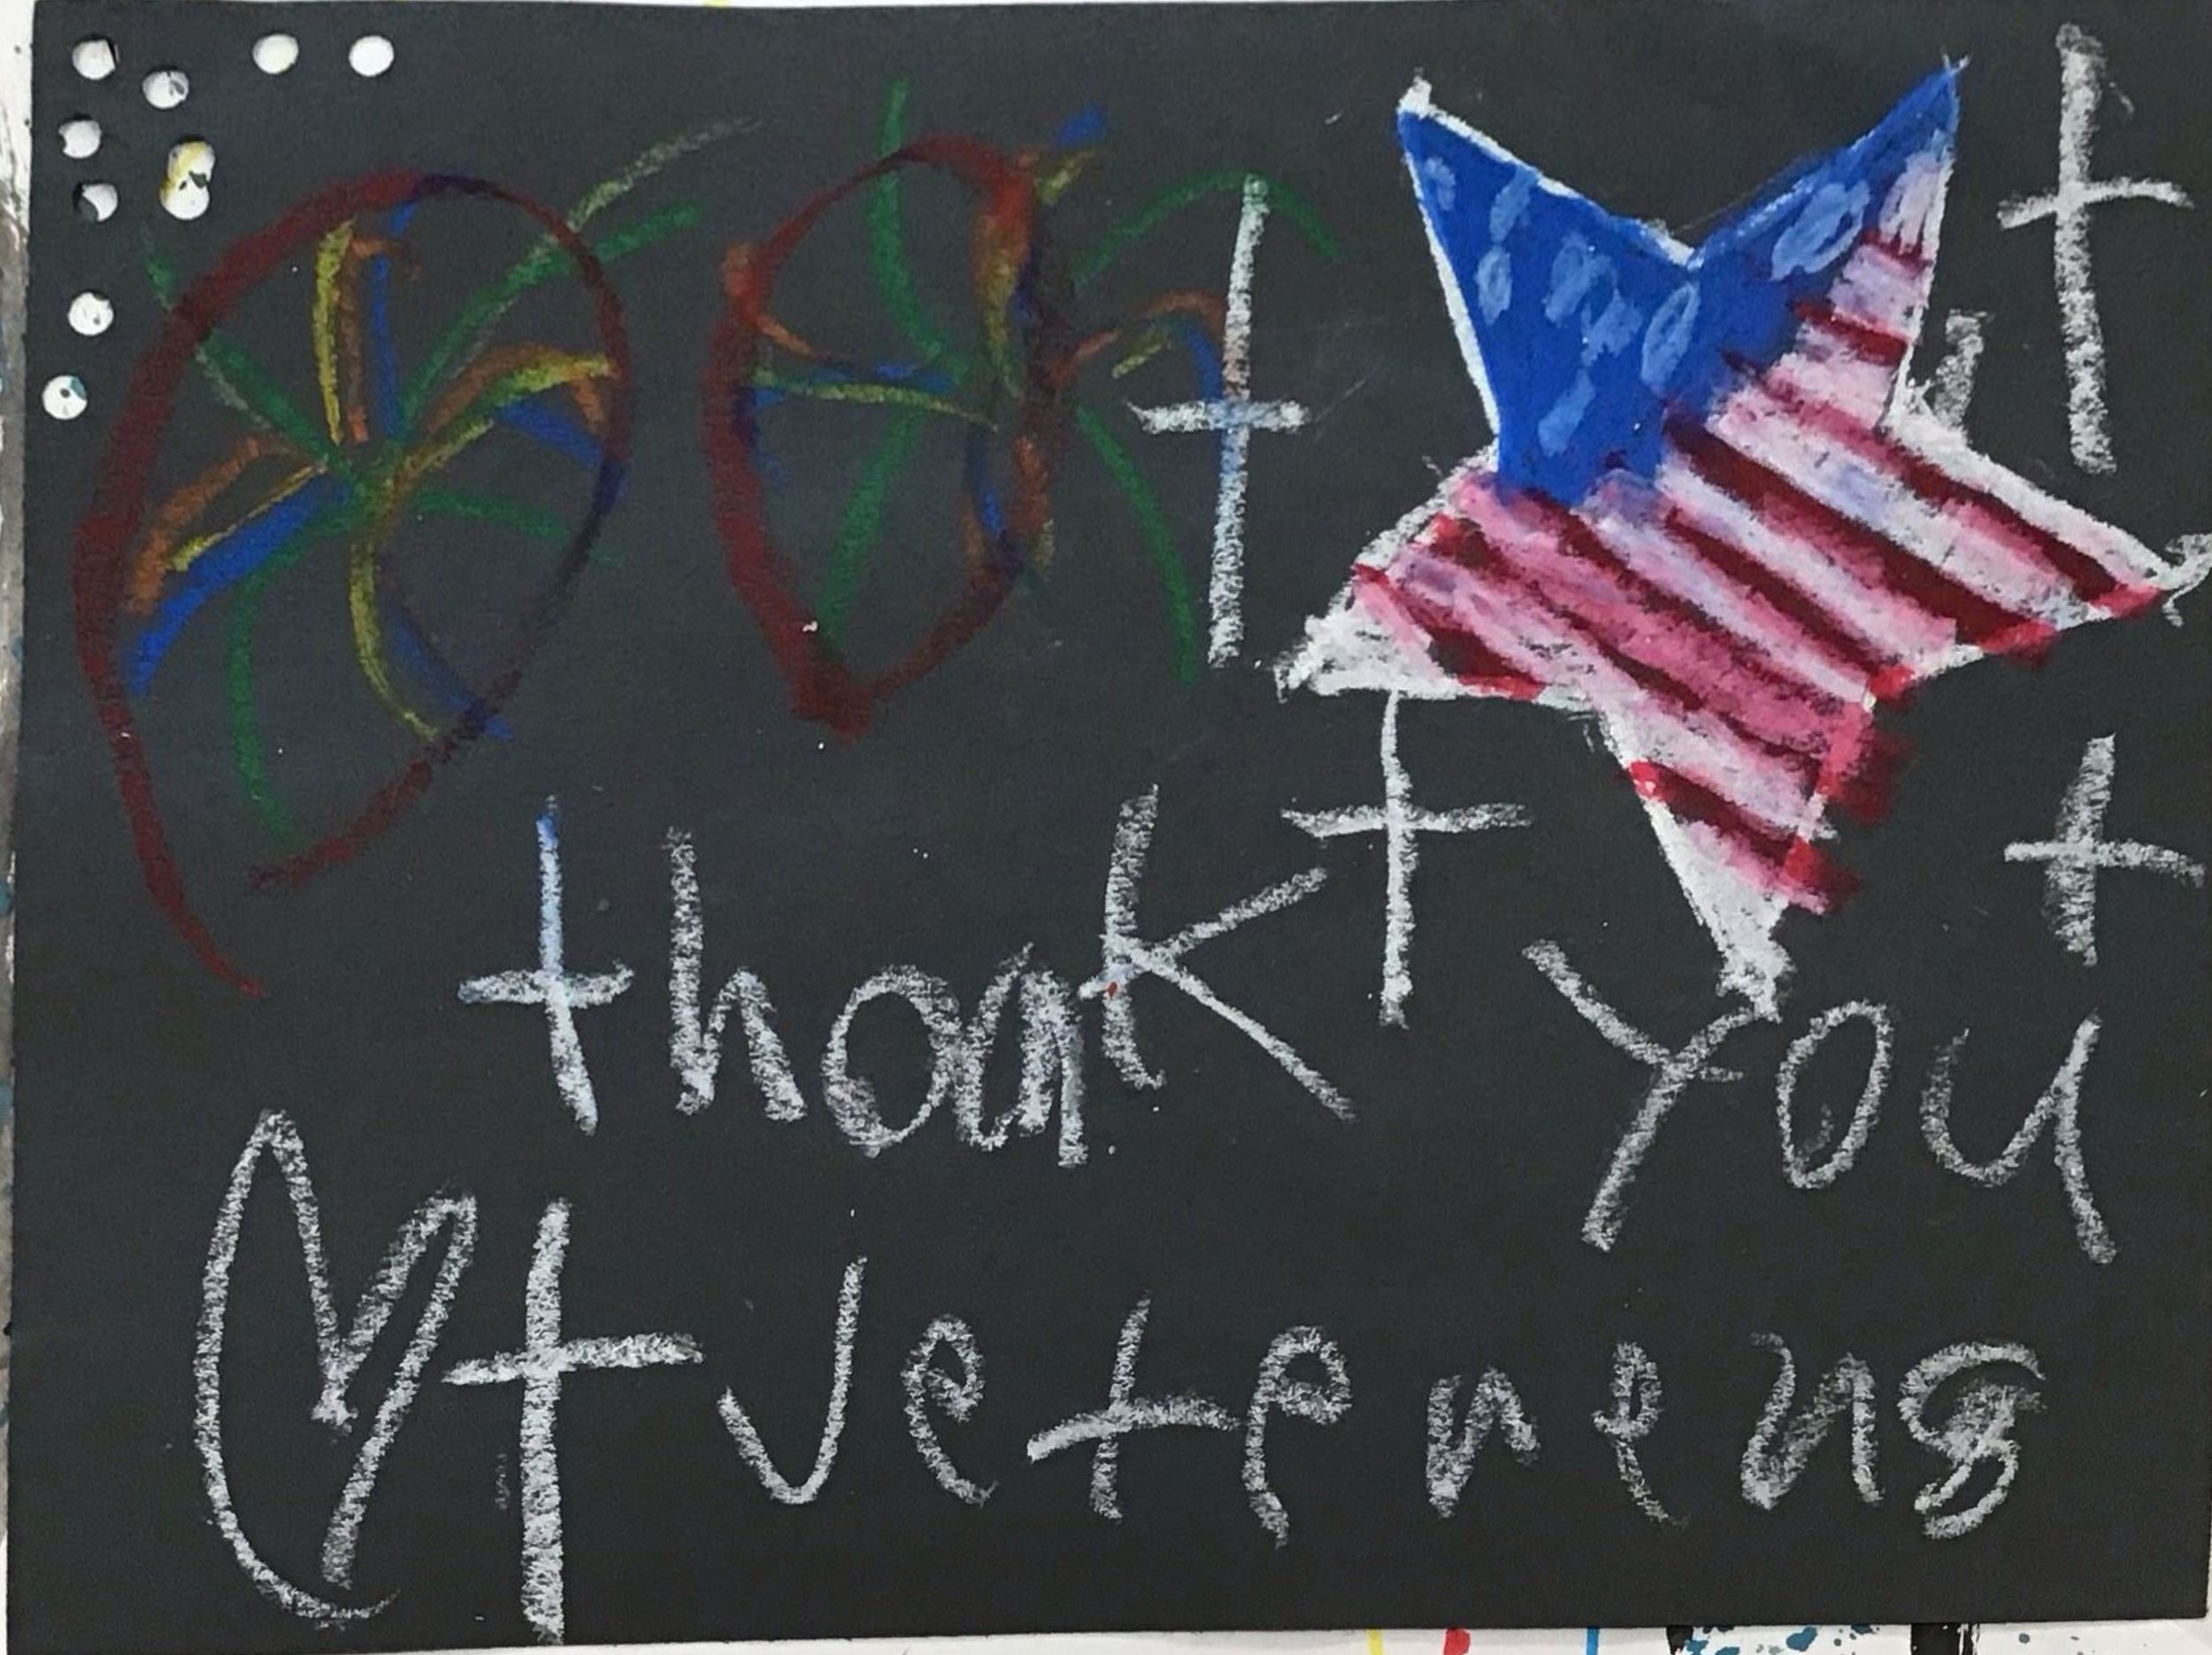 thoak you
veterens